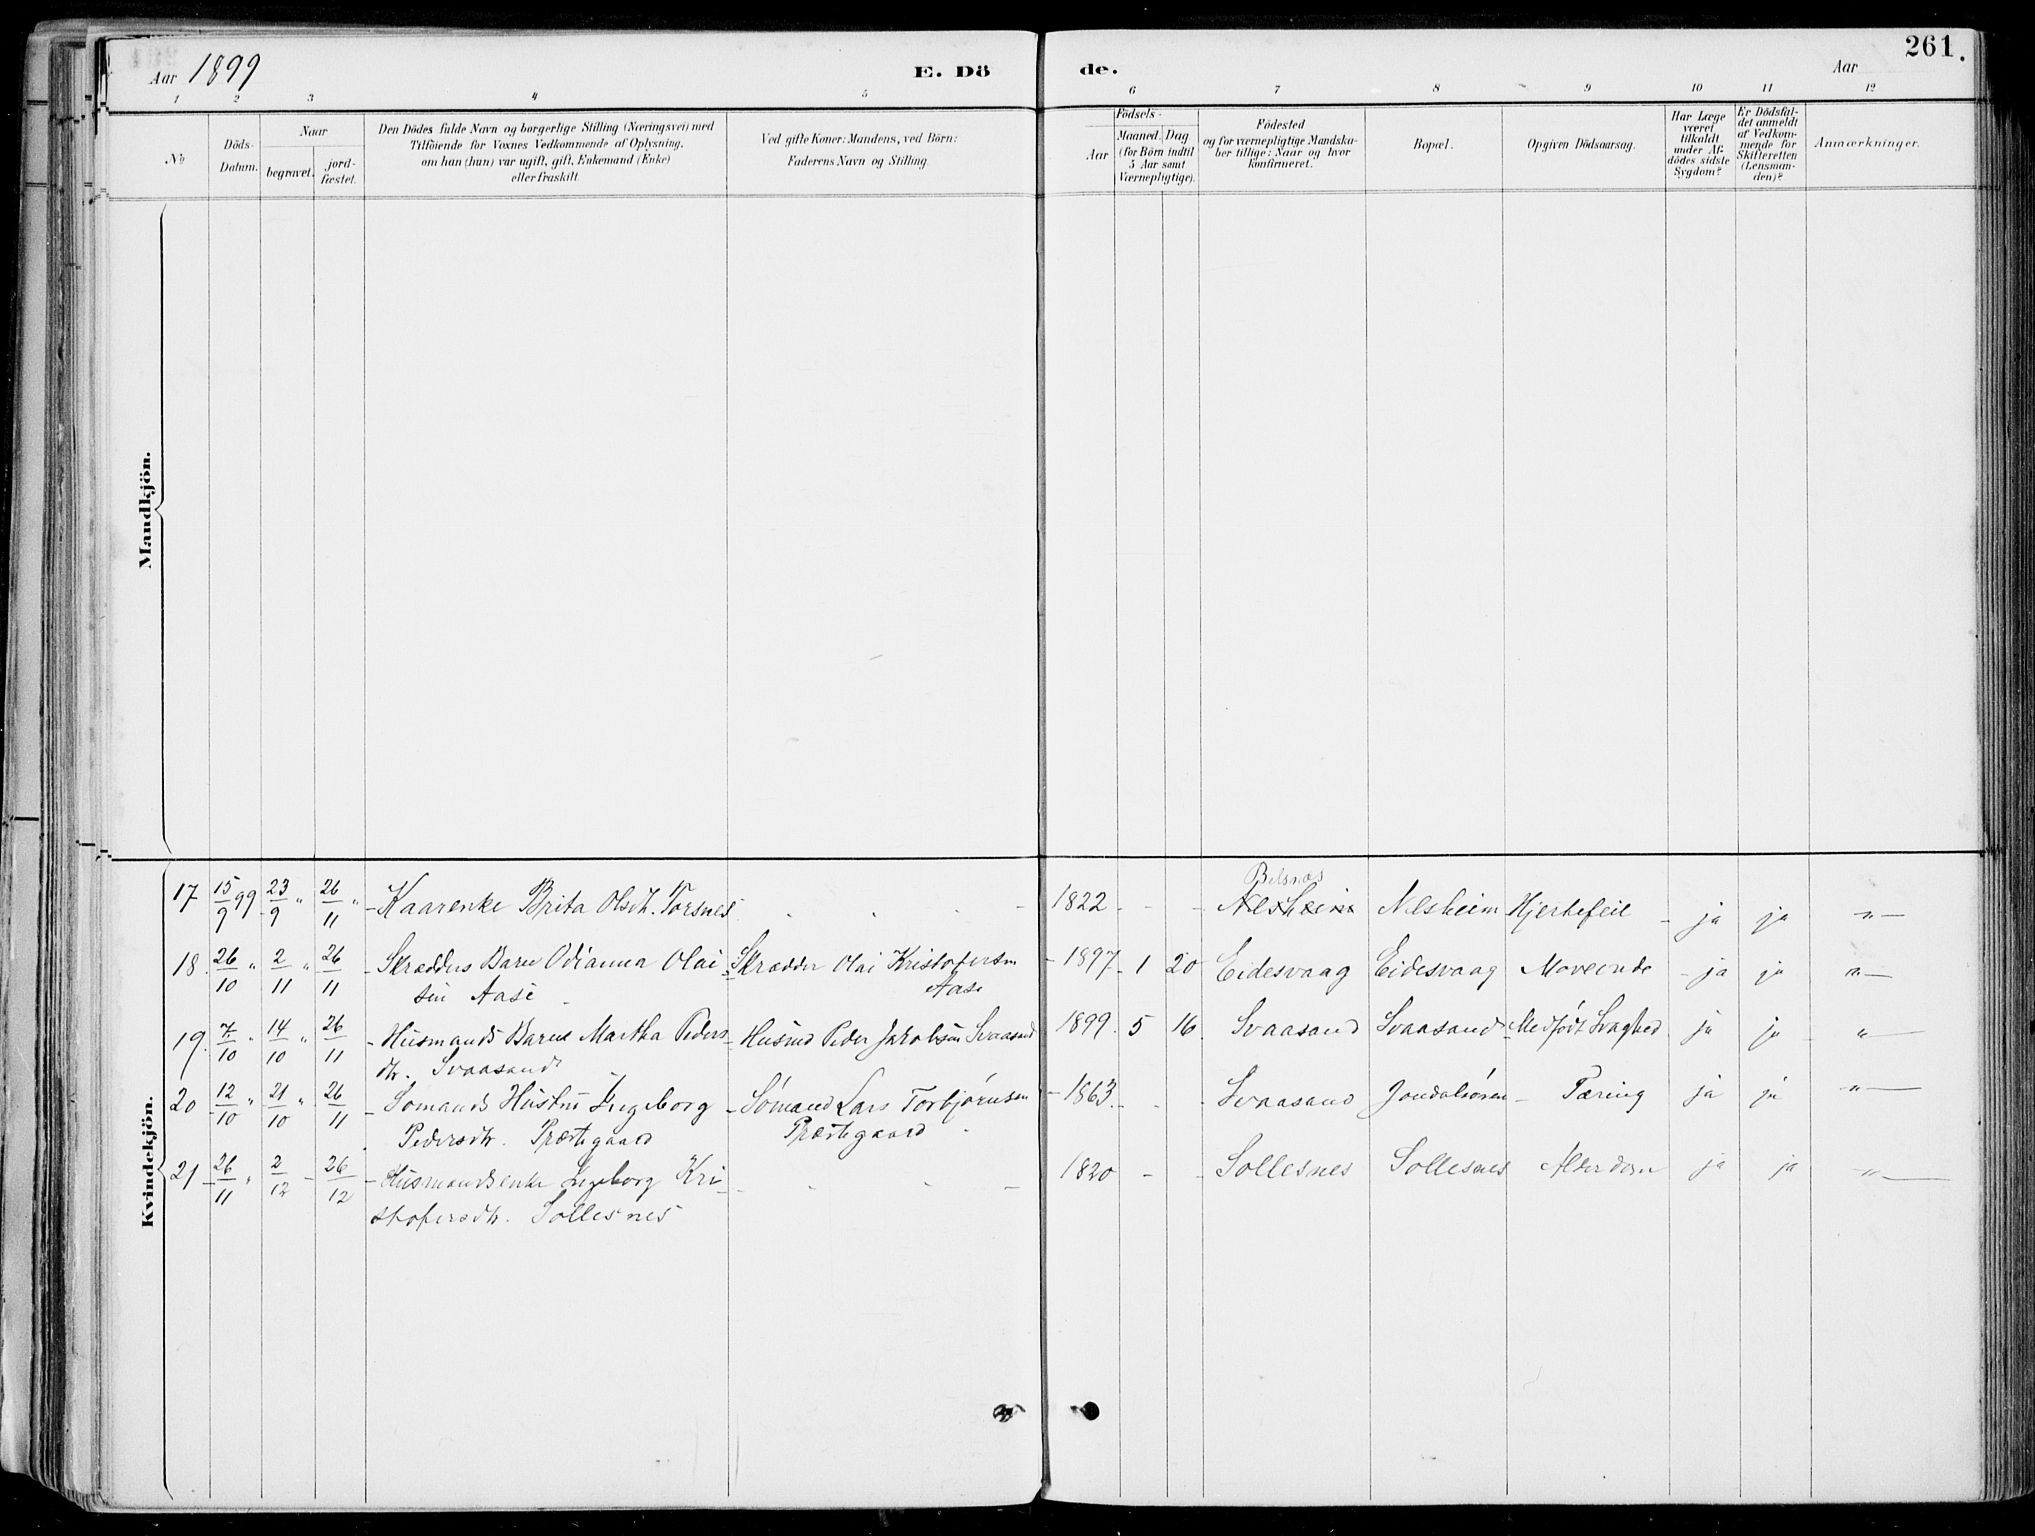 261.
Aar 1899
E. Dö
de.
Aar
1 2 3 4 5 6 7 8 9 10 11 12
No
Döds-
Datum.
Naar
begravet.
jord-
fæstet.
Den Dödes fulde Navn og borgerlige Stilling (Næringsvei) med
Tilföiende for Voxnes Vedkommende af Oplysning,
om han (hun) var ugift, gift, Enkemand (Enke)
eller fraskilt.
Ved gifte Koner: Mandens, ved Börn:
Faderens Navn og Stilling.
Födsels-
Aar
Maaned. Dag
(for Börn indtil
5 Aar samt
Værnepligtige).
Födested
og for værnepligtige Mandska-
ber tillige: Naar og hvor
konfirmeret.
Bopæl.
Opgiven Dödsaarsag.
Har Læge
været
tilkaldt
under Af-
dödes sidste
Sygdom?
Er Dödsfal-
det anmeldt
af Vedkom-
mende for
Skifteretten
(Lensman-
den)?
Anmærkninger.
Mandkjön.
Kvindekjön.
Belsnæs
17 15/9 99 23/9 " 26/11 " - Kaarenke Brita Olsdt. Torsnes - 1822 - - Nesheim Nesheim Hjertefeil - ja ja - " -
18. 26/10 " 2/11 " 26/11 - Skrædders Barn Odianna Olai- Skrædder Olai Kristofersen - 1897 - 1 20 Eidesvaag Eidesvaag - ja ja - " -
sen Aase Aase
19. 7/10 " 14/10 " 26/11 - Husmands Barn Martha Peders- Husmd Peder Jakobsen Svaasand 1899. 5 16 Svaasand Svaasand - Medfødt Svaghed ja ja - " -
dtr. Svaasand
20 12/10 " 21/10 " 26/11 - Sømands Hustru Ingeborg - Sømand Lars Torbjørnsen - 1863. - - Svaasand Jondalsøren - Tæring ja ja - " -
Pedersdtr. Præstegaard Præstegaard
21 26/11 " 2/12 - 26/12 - Husmandsenke Ingeborg Kri- - 1820 - - Sollesnes Sollesnes Alderdom ja ja - " -
stofersdtr. Sollesnes